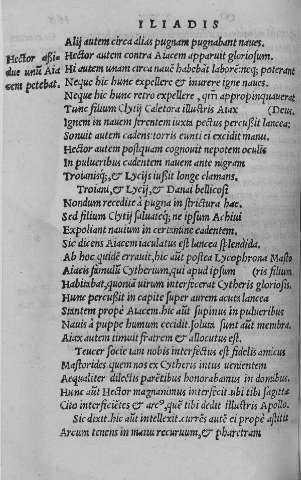 ILIADIS
Alij autem circa alias pugnam pugnabant naues.
Hector aßi-
due unū Aia
cem petebat.
Hector autem contra Aiacem apparuit gloriosum.
Hi autem unam circa nauē habebāt laborē: neq; poterant
Neque hic hunc expellere & inurere igne naues.
Neque hic hunc retro expellere, qm̄ appropinquauerat
Tunc filium Clytij Caletora illustris Aiax (Deus.
Ignem in nauem ferentem iuxta pectus percußit lancea:
Sonuit autem cadens: torris cunti ei excidit manu.
Hector autem postquam cognouit nepotem oculis
In pulueribus cadentem nauem ante nigram
Troianisq;, & Lycijs iußit longe clamans.
Troiani, & Lycij, & Danai bellicosi
Nondum recedite à pugna in strictura hac.
Sed filium Clytij saluate: ne ipsum Achiui
Expoliant nauium in certamine cadentem.
Sic dicens Aiacem iaculatus est lancea splendida.
Ab hoc quidē errauit, hic aūt postea Lycophrona Masto
Aiacis famulū Cytherium, qui apud ipsum (ris filium
Habitabat, quoniā uirum interfecerat Cytheris gloriosis.
Hunc percußit in capite super aurem acuta lancea
Stantem prope Aiacem. hic aūt supinus in pulueribus
Nauis à puppe humum cecidit. soluta sunt aūt membra.
Aiax autem timuit fratrem & allocutus est.
Teucer socie iam nobis interfectus est fidelis amicus
Mastorides quem nos ex Cytheris intus uenientem
Aequaliter dilectis parētibus honorabamus in domibus.
Hunc aūt Hector magnanimus interfecit. ubi tibi sagittæ
Cito interficiētes & arcꝰ, quē tibi dedit illustris Apollo.
Sic dixit. hic aūt intellexit. currēs autē ei propè astitit
Arcum tenens in manu recuruum, & pharetram